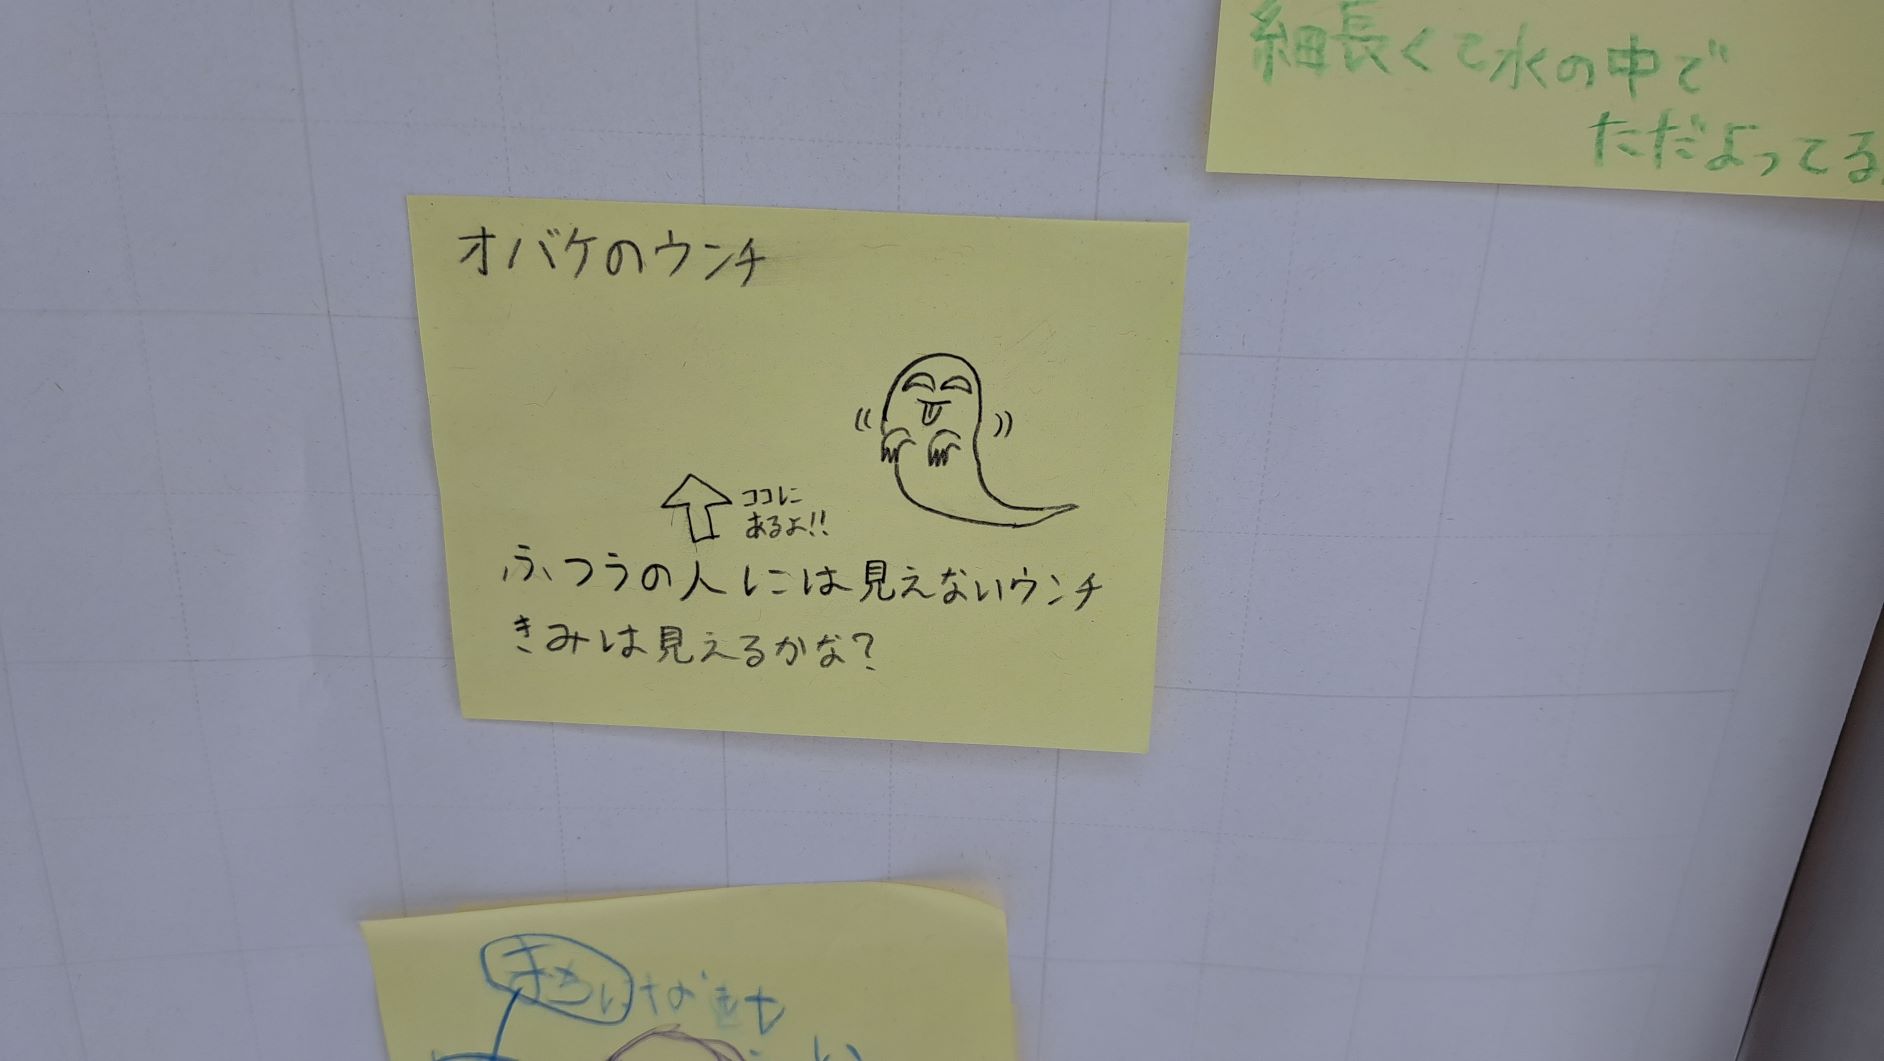 細長くて水の中で
ただよってる
オバケのウンチ
ココに
あるよ!!
ふつうの人には見えないウンチ
きみは見えるかな?